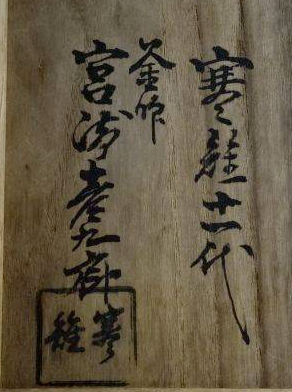 寒雉十一代
釜師
宮崎彦九郎
寒雉